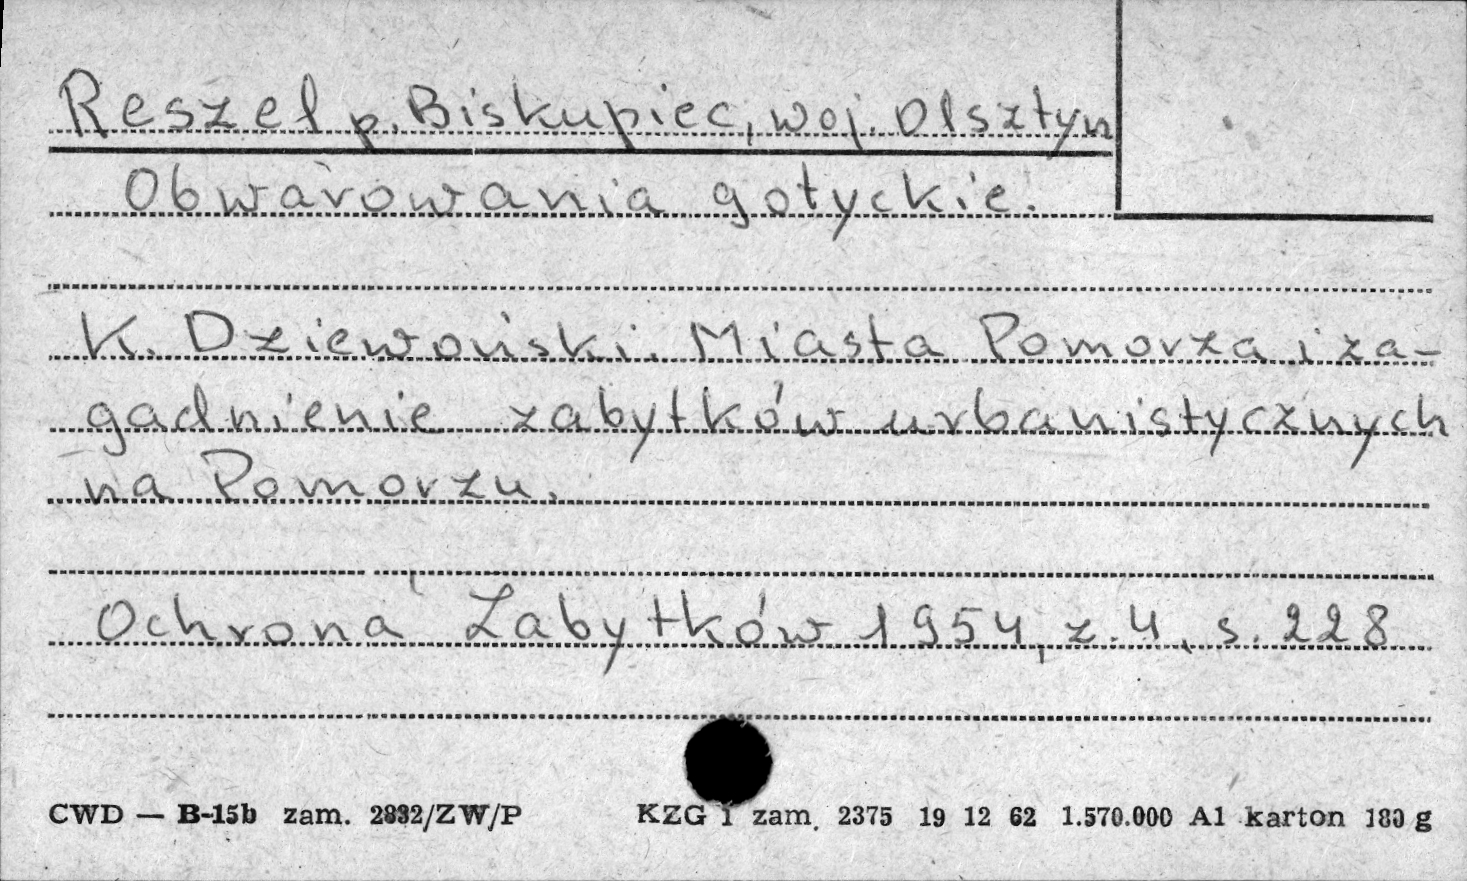 Reszel p. Biskupiec, woj. Olsztyn
Obwarowania gotyckie.
K. Dziewoński. Miasta Pomorza i za-
gadnienie zabytków urbanistycznych
na Pomorzu.
Ochrona Zabytków 1954, z. 4, s. 228
CWD — B-15b zam. 2832/ZW/P KZG 1 zam. 2375 19 12 62 1.570.000 A1 karton 180 g